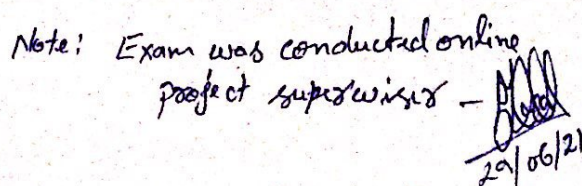 Note: Exam was conducted online
project superwiser –
29/06/21